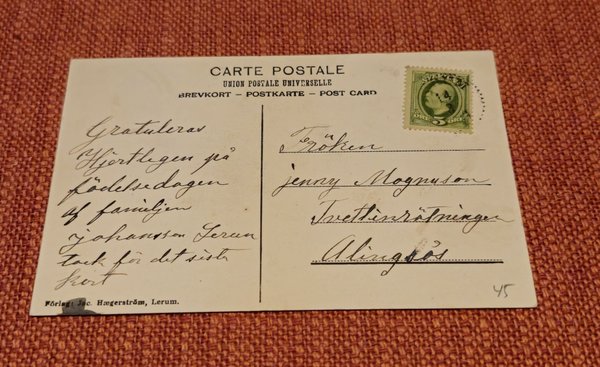 CARTE POSTALE
UNION POSTALE UNIVERSELLE
BREVKORT – POSTKARTE – POST CARD
Gratuleras
Hjertlegen på
födelsedagen
af familjen
johansson Lerum
tack för det sista
kort
Fröken
jenny Magnuson
Alingsås
ÖRE 5 ÖRE
Förlag: Jac. Hægerström, Lerum.
45